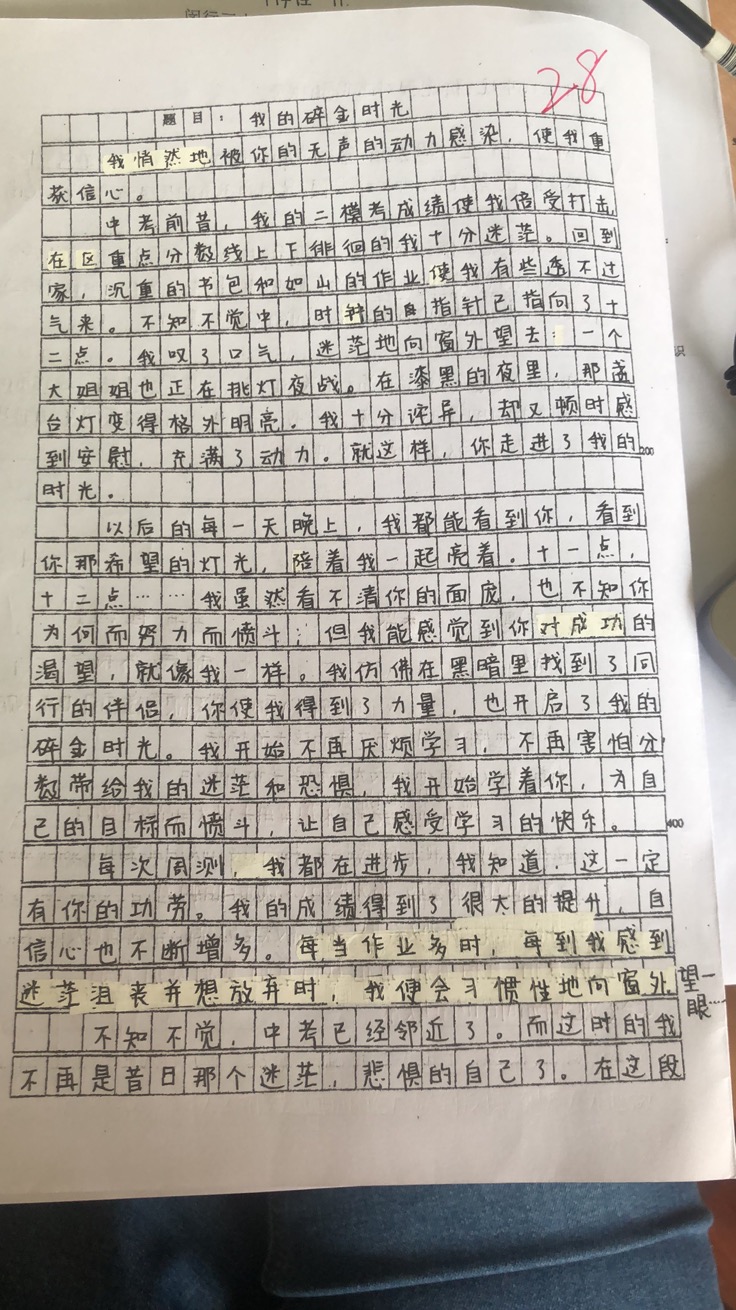 28
题目：我的碎金时光
我悄然地被你的无声的动力感染，使我重
获信心。
中考前昔，我的二模考成绩使我倍受打击
在区重点分数线上下徘徊的我十分迷茫。回到
家，沉重的书包和如山的作业使我有些透不过
气来。不知不觉中，时钟的指针已指向了十
二点。我叹了口气，迷茫地向窗外望去：一个
大姐姐也正在挑灯夜战。在漆黑的夜里，那盏
台灯变得格外明亮。我十分诧异，却又顿时感
到安慰，充满了动力。就这样，你走进了我的
200
时光。
以后的每一天晚上，我都能看到你，看到
你那希望的灯光，陪着我一起亮着。十一点，
十二点……我虽然看不清你的面庞，也不知你
为何而努力而愤斗；但我能感觉到你对成功的
渴望，就像我一样。我仿佛在黑暗里找到了同
行的伴侣，你使我得到了力量，也开启了我的
碎金时光。我开始不再厌烦学习，不再害怕分
数带给我的迷茫和恐惧，我开始学着你，为自
己的目标而愤斗，让自己感受学习的快乐。
400
每次周测，我都在进步，我知道，这一定
有你的功劳。我的成绩得到了很大的提升，自
信心也不断增多。每当作业多时，每到我感到
迷茫沮丧并想放弃时，我便会习惯性地向窗外望一
眼……
不知不觉，中考已经邻近了。而这时的我
不再是昔日那个迷茫，悲惧的自己了。在这段